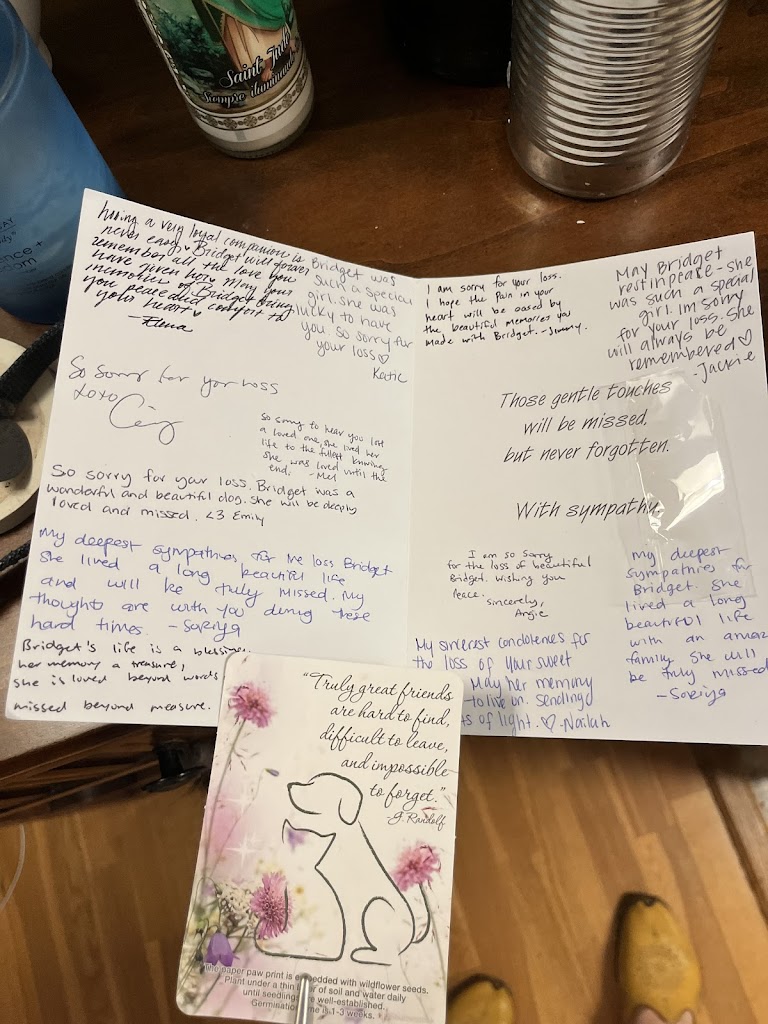 Saint Jude
Siempre iluminando
having a very loyal companion is
never easy. Bridget will forever
remember all the love you
have given her. May your
memories of Bridget bring
you peace and comfort to
your heart ♥
-Elena
Bridget was
such a special
girl. She was
lucky to have
you. So sorry for
your loss ♡
Katie
So sorry for your loss
xoxo
So sorry to hear you lost
a loved one, she lived her
life to the fullest knowing
she was loved until the
end. -Mel
So sorry for your loss. Bridget was a
wonderful and beautiful dog. She will be deeply
loved and missed. <3 Emily
My deepest sympathies for the loss Bridget
she lived a long beautiful life
and will be truly missed. My
thoughts are with you during these
hard times. -Soriya
Bridget's life is a blessing
her memory a treasure,
she is loved beyond words
missed beyond measure.
I am sorry for your loss.
I hope the pain in your
heart will be eased by
the beautiful memories you
made with Bridget. -Jimmy.
May Bridget
rest in peace - she
was such a special
girl. Im sorry
for your loss. She
will always be
remembered ♡
-Jackie
Those gentle touches
will be missed,
but never forgotten.
With sympathy,
I am so sorry
for the loss of beautiful
Bridget. Wishing you
Peace.
Sincerely,
Angie
My deepest
sympathies for
Bridget. She
lived a long
beautiful life
with an amaz
family she will
be truly missed
-Soriya
My sincerest condolences for
the loss of your sweet
May her memory
to live on. Sending
of light. ♡ -Nailah
"Truly great friends
are hard to find,
difficult to leave,
and impossible
to forget."
-G. Randolf
The paper paw print is embedded with wildflower seeds.
Plant under a thin layer of soil and water daily
until seedlings are well-established.
Germination time is 1-3 weeks.